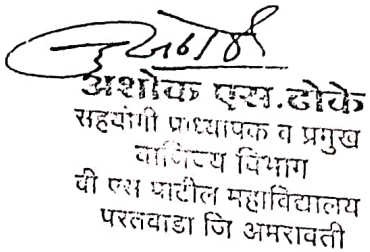 अशोक एस. टोके
सहयोगी प्राध्यापक व प्रमुख
वाणिज्य विभाग
वी एस पाटील महाविद्यालय
परतवाडा जि अमरावती